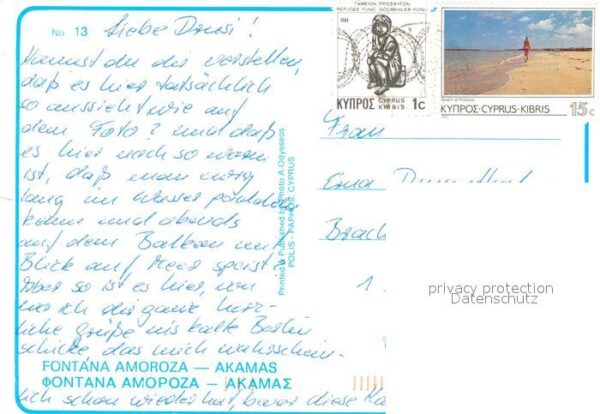 No. 13
Liebe Drusi!
Kannst du dir vorstellen,
daß es hier tatsächlich
so aussieht wie auf
dem Foto? und daß
es hier noch so warm
ist, daß man
lang im Wasser
kann und abends
auf dem Balkon mit
Blick auf Meer speist.
Aber so ist es hier, von
wo ich dir ganz herz-
liche Grüße ins kalte Berlin
schicke, das mich wahrschein-
lich schon wieder hat, bevor diese
FONTANA AMOROZA — AKAMAS
ΦΟΝΤΑΝΑ ΑΜΟΡΟΖΑ — ΑΚΑΜΑΣ
Printed & Published by Photo A Odysseos
POLIS - PAPHOS, CYPRUS
ΤΑΜΕΙΟΝ ΠΡΟΣΦΥΓΩΝ
REFUGEE FUND GÖÇMENLER FONU
1984
ΚΥΠΡΟΣ CYPRUS KIBRIS 1c
ΚΥΠΡΟΣ·CYPRUS·KIBRIS 15c
Frau
Erna
1
privacy protection
Datenschutz